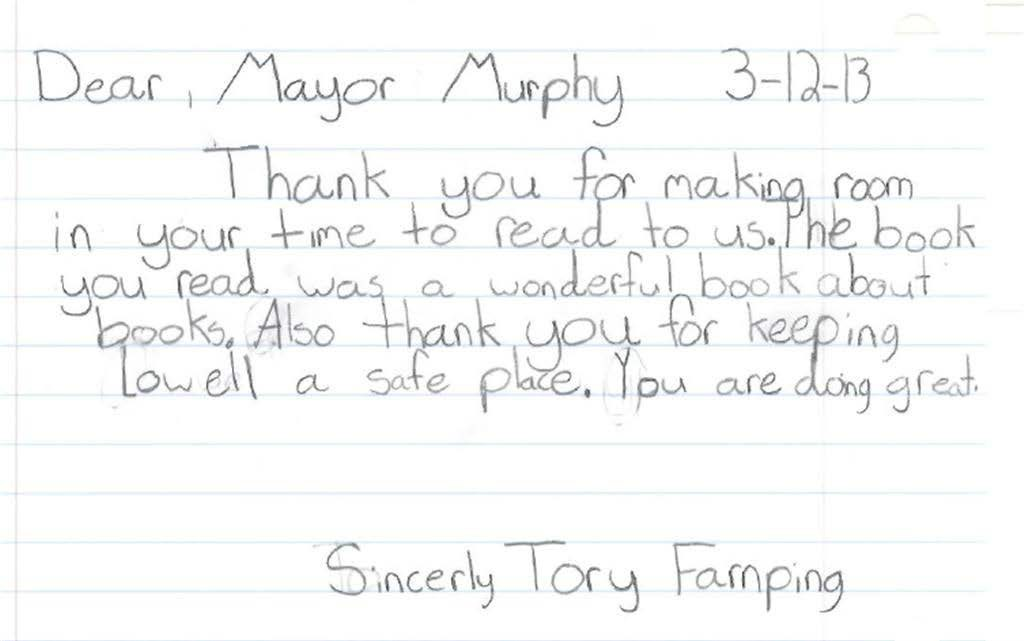 Dear, Mayor Murphy 3-12-13
Thank you for making room
in your time to read to us. The book
you read was a wonderful book about
books. Also thank you for keeping
Lowell a safe place. You are doing great.
Sincerly Tory Farnping